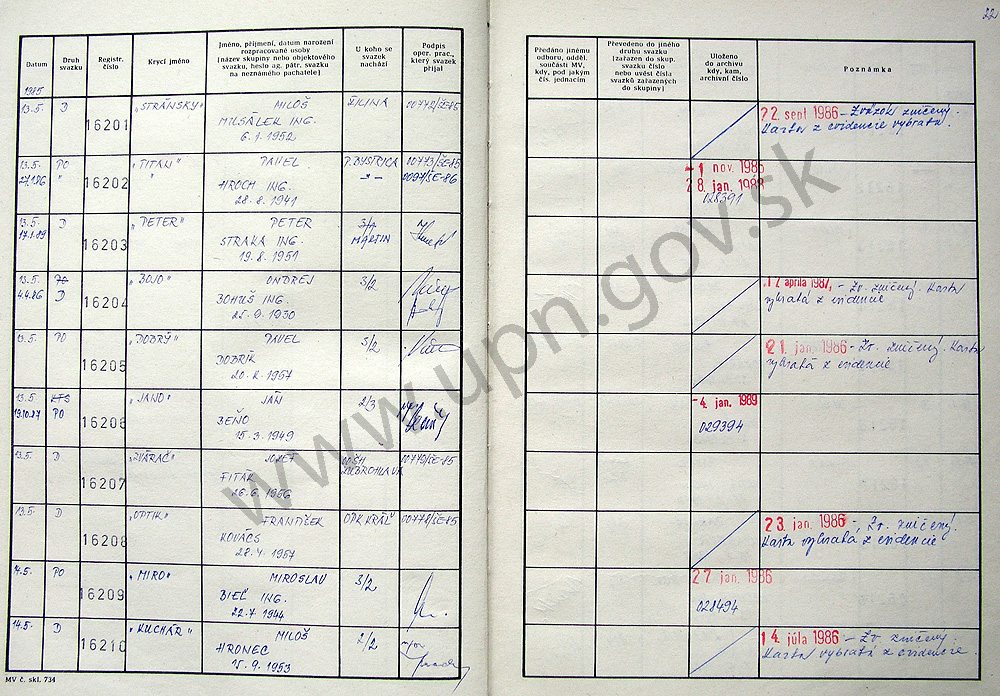 22
Datum
Druh svazku
Registr. číslo
Krycí jméno
Jméno, příjmení, datum narození
rozpracované osoby
(název skupiny nebo objektového
svazku, heslo ag. pátr. svazku
na neznámého pachatele)
U koho se
svazek
nachází
Podpis
oper. prac.,
který svazek
přijal
Předáno jinému
odboru, odděl.
součásti MV,
kdy, pod jakým
čís. jednacím
Převedeno do jiného
druhu svazku
(zařazen do skup.
svazku číslo
nebo uvést čísla
svazků zařazených
do skupiny)
Uloženo
do archivu
kdy, kam,
archivní číslo
Poznámka
1985
13.5. D 16201 "STRÁNSKY" MILOŠ ŽILINA
MUSÁLEK ING.
6.1.1952
22. sept 1986 - Zväzok zničený.
Karta z evidencie vybratá.
13.5. PO 16202 "TITAN" PAVEL P. BYSTRICA 00773/ŠE-85
27.1.86 " HROCH ING. - " -
28.8.1941
-1 nov. 1985
28. jan. 1988
028591
13.5. D 16203 "PETER" PETER
17.1.89 STRAKA ING. MARTIN
19.8.1951
13.5. PO 16204 "BOJO" ONDREJ 3/2
4.4.86 D BOHUŠ ING.
25.9.1930
12 apríla 1987, - Zv. zničený. Karta
vybratá z evidencie
13.5. PO 16205 "DOBRÝ" PAVEL 5/2
DOBRÍK
1957
21. jan. 1986 - Zv. zničený. Karta
vybratá z evidencie
13.5. KTS 16206 "JANO" JÁN 2/3
19.10.87 PO BEŇO
15.3.1949
-4. jan. 1989
029394
13.5. D 16207 "ZVÁRAČ" JOZEF
FITÁK DUBROHLAVA
26.6.1956
13.5. D 16208 "OPTIK" FRANTIŠEK OPK KRÁĽ 00778/ŠE-85
KOVÁCS
28.4.1957
23. jan. 1986 - Zv. zničený.
Karta vybratá z evidencie
14.5. PO 16209 "MIRO" MIROSLAV 3/2
BIEĽ ING.
22.7.1944
27 jan. 1986
028494
14.5. D 16210 "KUCHÁR" MILOŠ 2/2
HRONEC
15.9.1953
14. júla 1986 - Zv. zničený.
Karta vybratá z evidencie.
MV č. skl. 734
www.upn.gov.sk